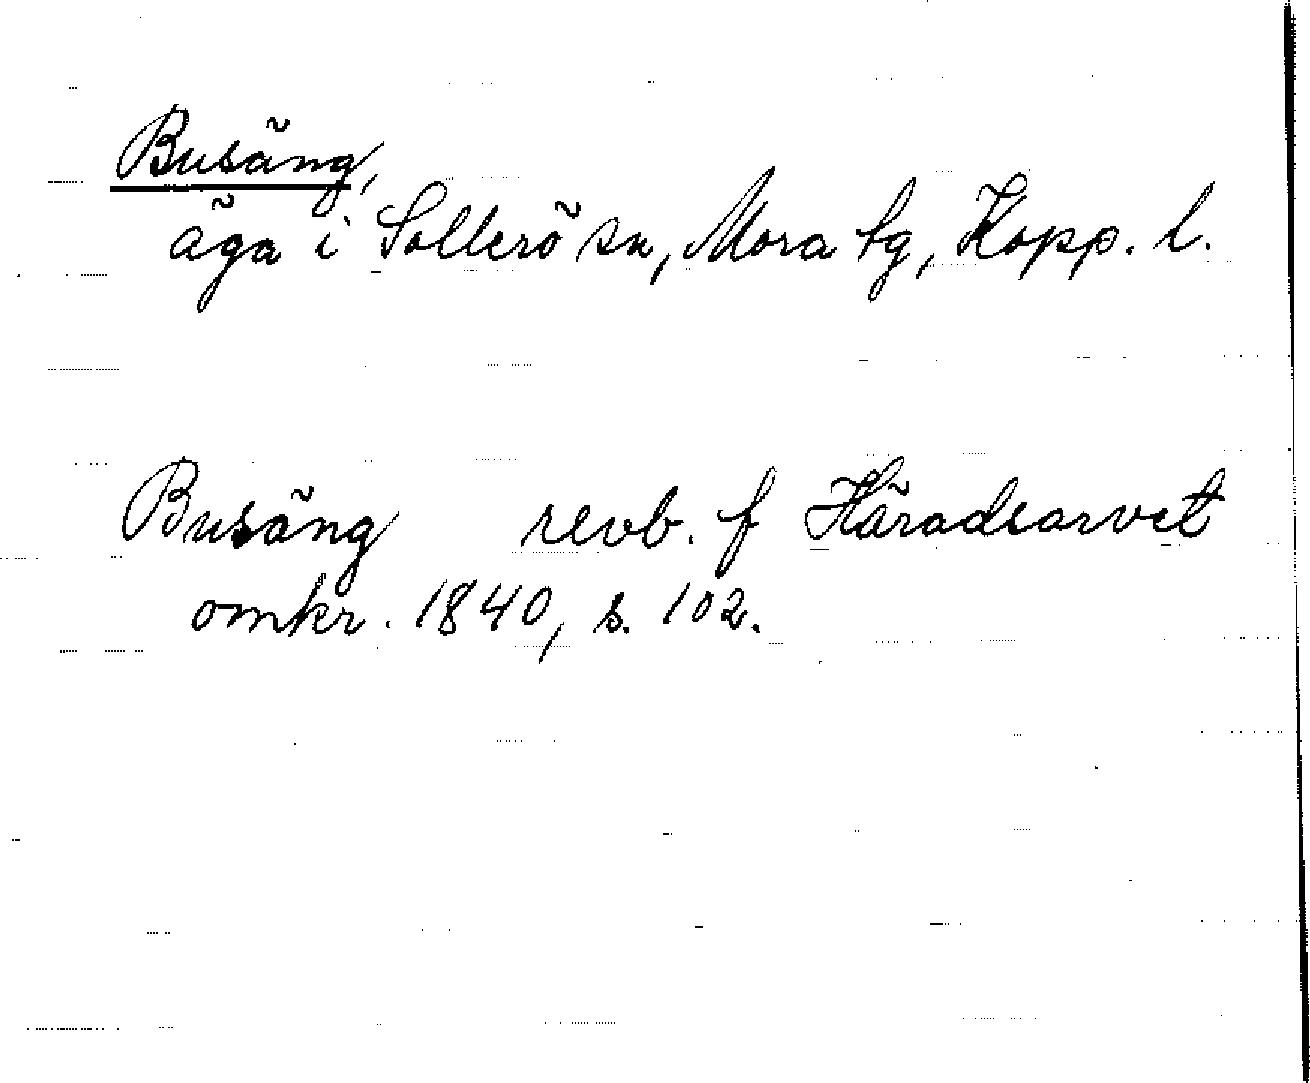 Busäng,
äga i Sollerö sn, Mora tg, Kopp. l.
Busäng revb. f Häradsarvet
omkr. 1840, s. 102.